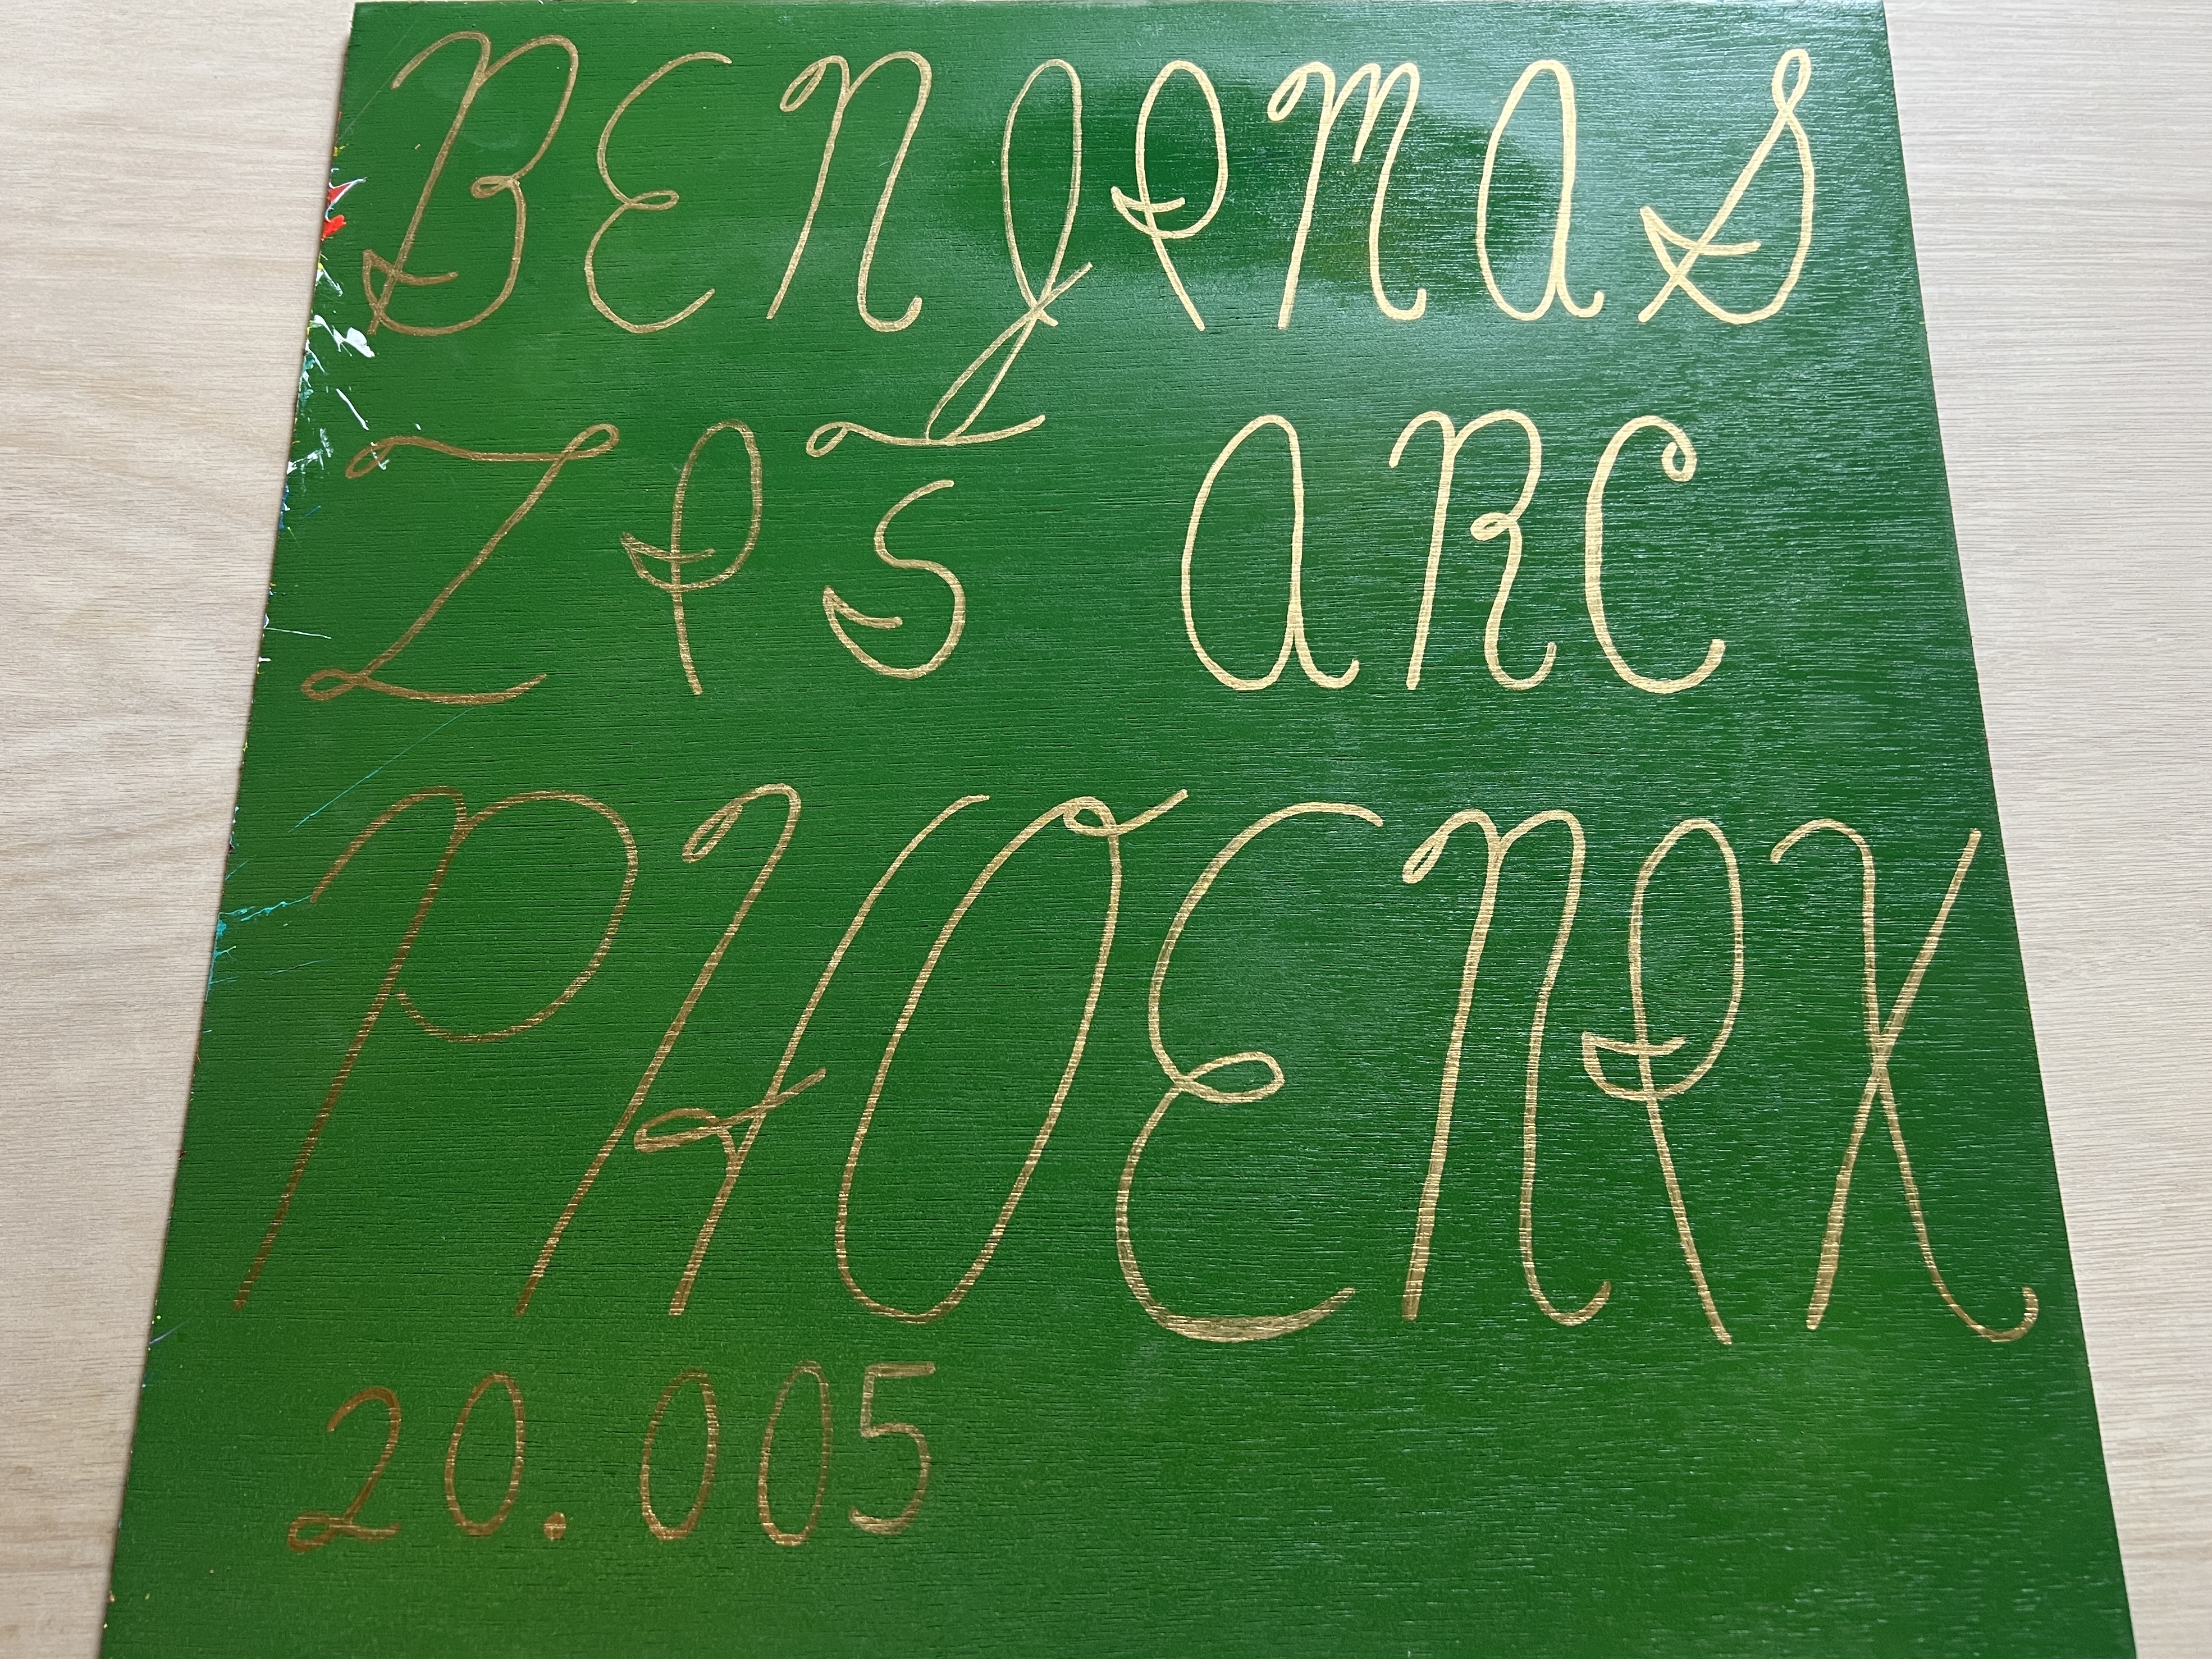 BENJIMAS
ZIS ARC
PHOENIX
20.005